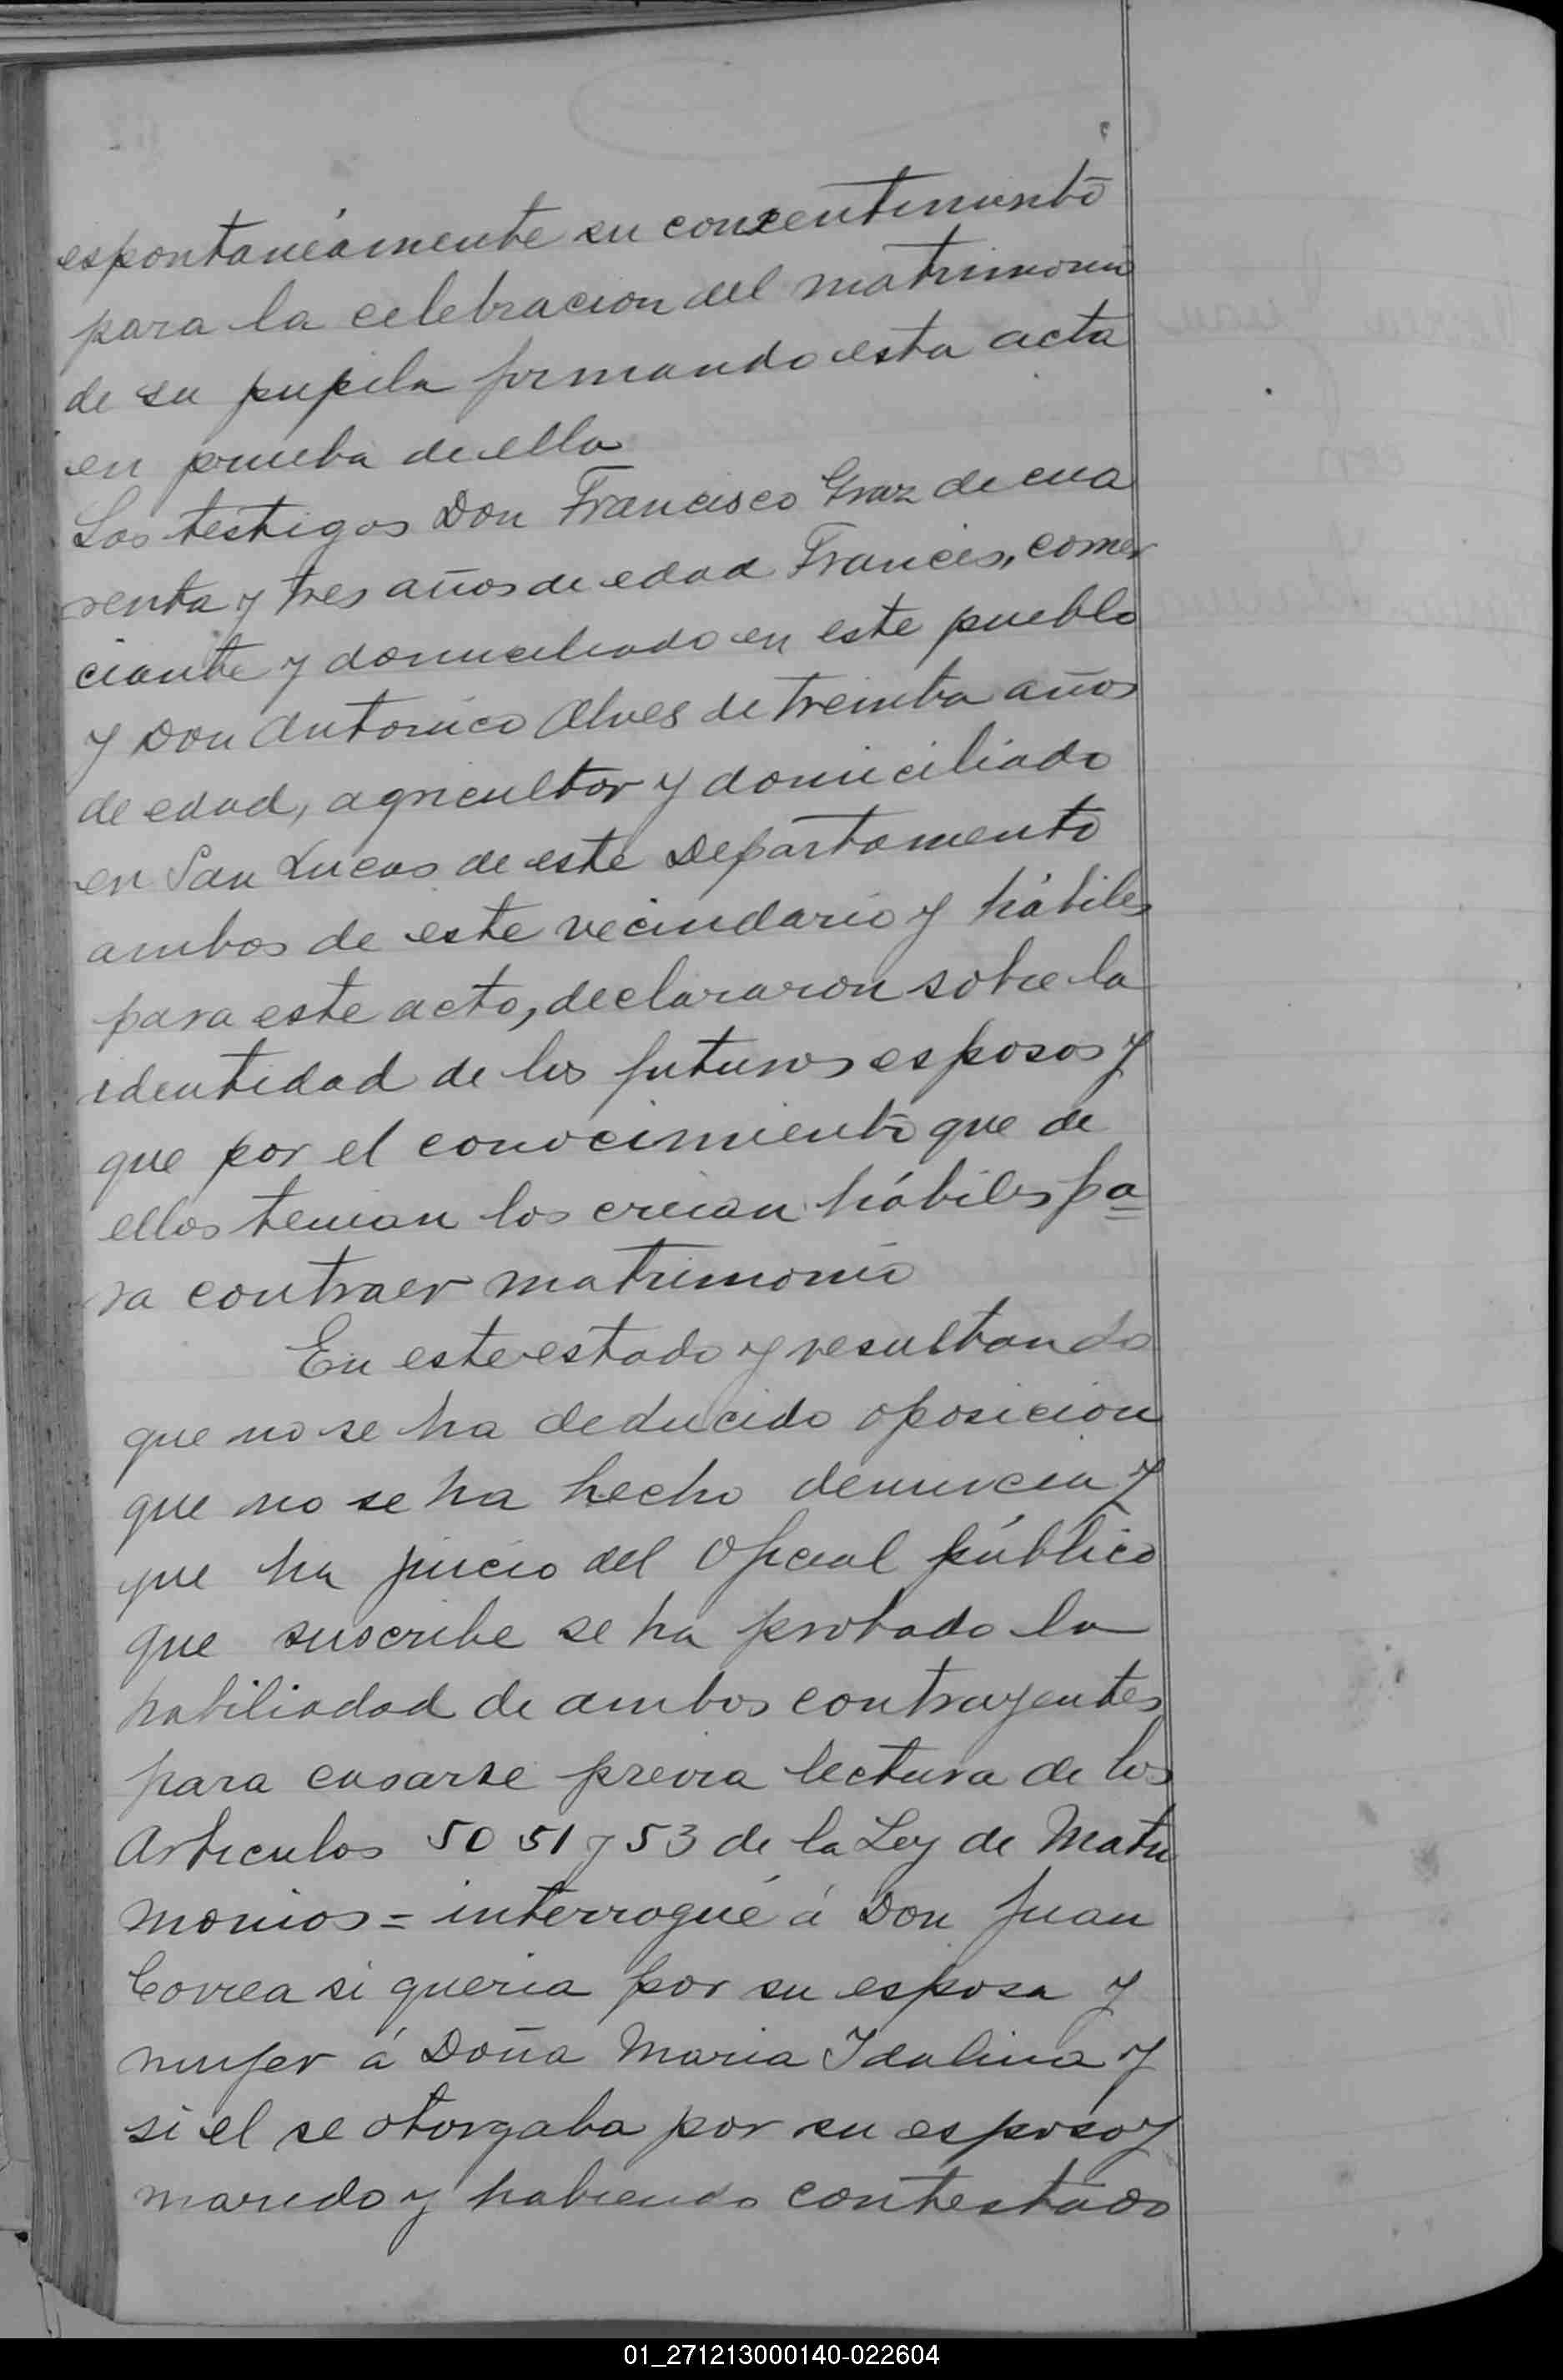 espontanéamente su consentimiento
para la celebracion del matrimonio
de su pupila firmando esta acta
en prueba de ello
Los testigos Don Francisco Graz de cua
renta y tres años de edad Francés, comer
ciante y domiciliado en este pueblo
y Don Antonico Alves de treinta años
de edad, agricultor y domiciliado
en San Lucas de este Departamento
ambos de este vecindario y hábiles
para este acto, declararon sobre la
identidad de los futuros esposos y
que por el conocimiento que de
ellos tenian los creian hábiles pa
ra contraer matrimonio
En este estado y resultando
que no se ha deducido oposicion
que no se ha hecho denuncia y
que ha juicio del Oficial público
que suscribe se ha probado la
habiliadad de ambos contrayentes
para casarse previa lectura de los
Articulos 50 51 y 53 de la Ley de Matri
monios = interrogué á Don Juan
Correa si queria por su esposa y
mujer á Doña Maria Idalina y
si el se otorgaba por su esposo y
marido y habiendo contestado
01_271213000140-022604